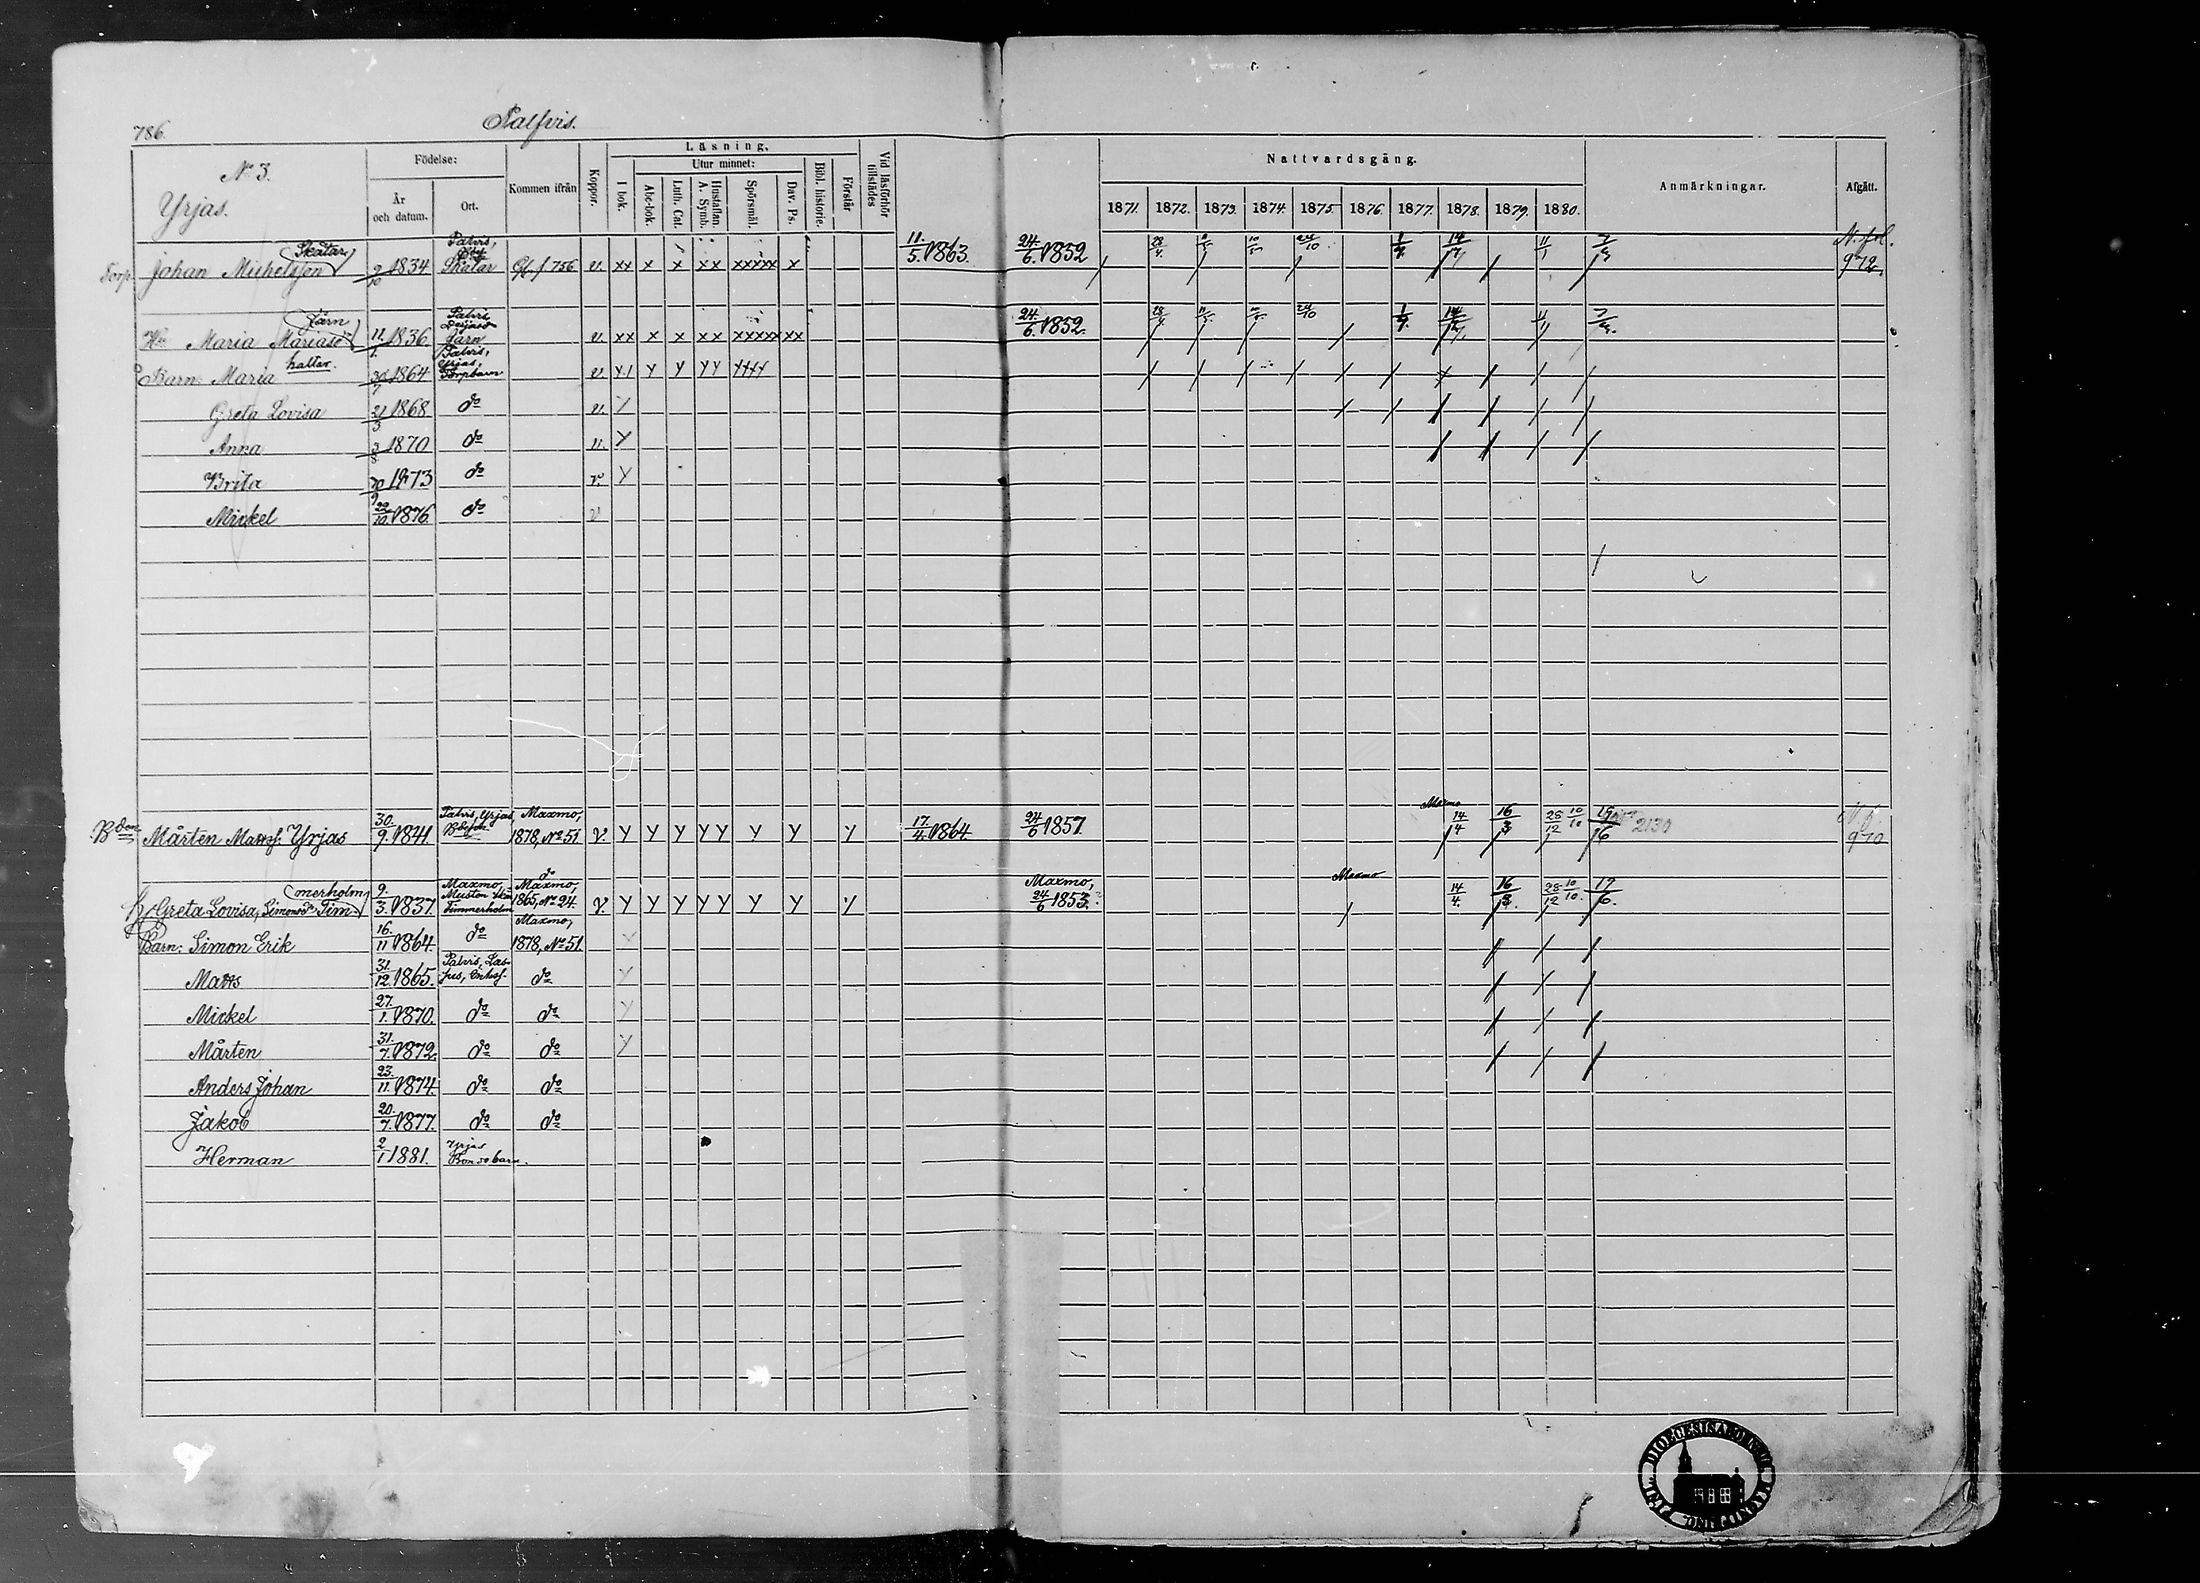 786.
Palfvis.
No 3.
Yrjas.
Födelse:
År och datum.
Ort.
Kommen ifrån
Koppor.
Läsning.
I bok.
Utur minnet:
Abc-bok.
Luth. Cat.
Hustaflan. A. Symb.
Spörsmål.
Dav. Ps.
Bibl. historie.
Förstår
Vid läsförhör tillstädes
Nattvardsgång.
1871. 1872. 1873. 1874. 1875. 1876. 1877. 1878. 1879. 1880.
Anmärkningar.
Afgått.
Torp. Johan Michelsson Skatar 1834 Skatar f. 756 v. xx x x xx xxxxx x 11/5 1863. 24/6 1852 N. fol. 972.
Hu Maria Mariasd Järn 11/1. 1836 Järn v. xx x x xx xxxxx xx 24/6 1852.
Barn: Maria haltar. 30/7 1864 Palvis, Yrjas, Torpbarn v.
Greta Lovisa 21/3 1868 do v.
Anna 3/8 1870 do v.
Brita 20/9 1873 do v.
Mickel 22/10. 1876. do v
Bden Mårten Mattsf. Yrjas 30/9. 1841. Palvis, Yrjas, Maxmo, 1878, No 51 v. Y Y Y YY Y Y Y 17/4. 1864 24/6 1857. Maxmo 14/4 16/3 28/12 10/10 2130 970
H. Greta Lovisa, Simonsdr Timmerholm 9/3. 1837. Maxmo, Timmerholm Maxmo, 1865, No 24. v. Y Y Y YY Y Y Y Maxmo, 24/6 1853. Maxmo 14/4. 16/3. 28/12 10/10. 17/6.
Barn: Simon Erik 16/11 1864. do Maxmo, 1878, No 51.
Matts 31/12. 1865. Palvis, do
Mickel 27/1. 1870. do do
Mårten 31/7. 1872. do do
Anders Johan 23/11. 1874. do do
Jakob 20/7. 1877. do do
Herman 2/1 1881. Yrjas Bondebarn.